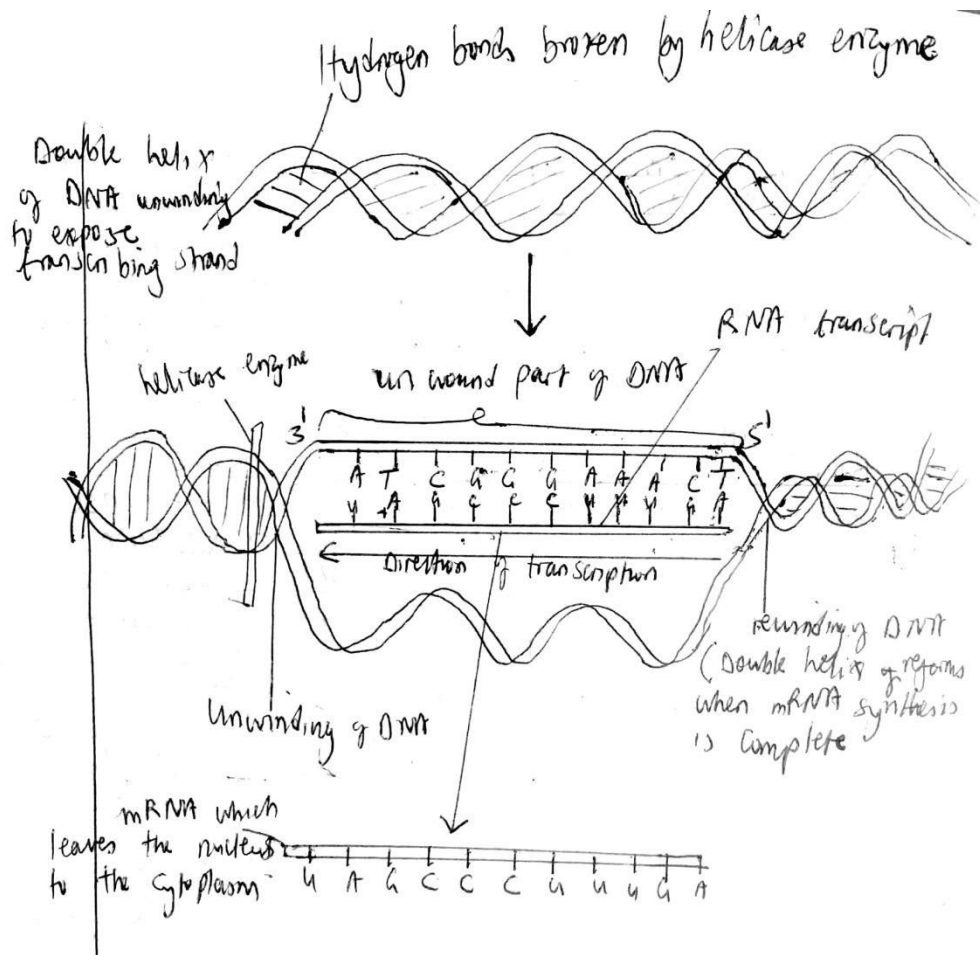 Hydrogen bonds broken by helicase enzyme
Double helix
of DNA unwinding
to expose
transcribing strand
RNA transcript
helicase enzyme
unwound part of DNA
3'
5'
A T C G G G A A A C T
U A G C C C U U U G A
Direction of transcription
Unwinding of DNA
rewinding of DNA
(Double helix of reforms
when mRNA synthesis
is complete
mRNA which
leaves the nucleus
to the cytoplasm
U A G C C C U U U G A